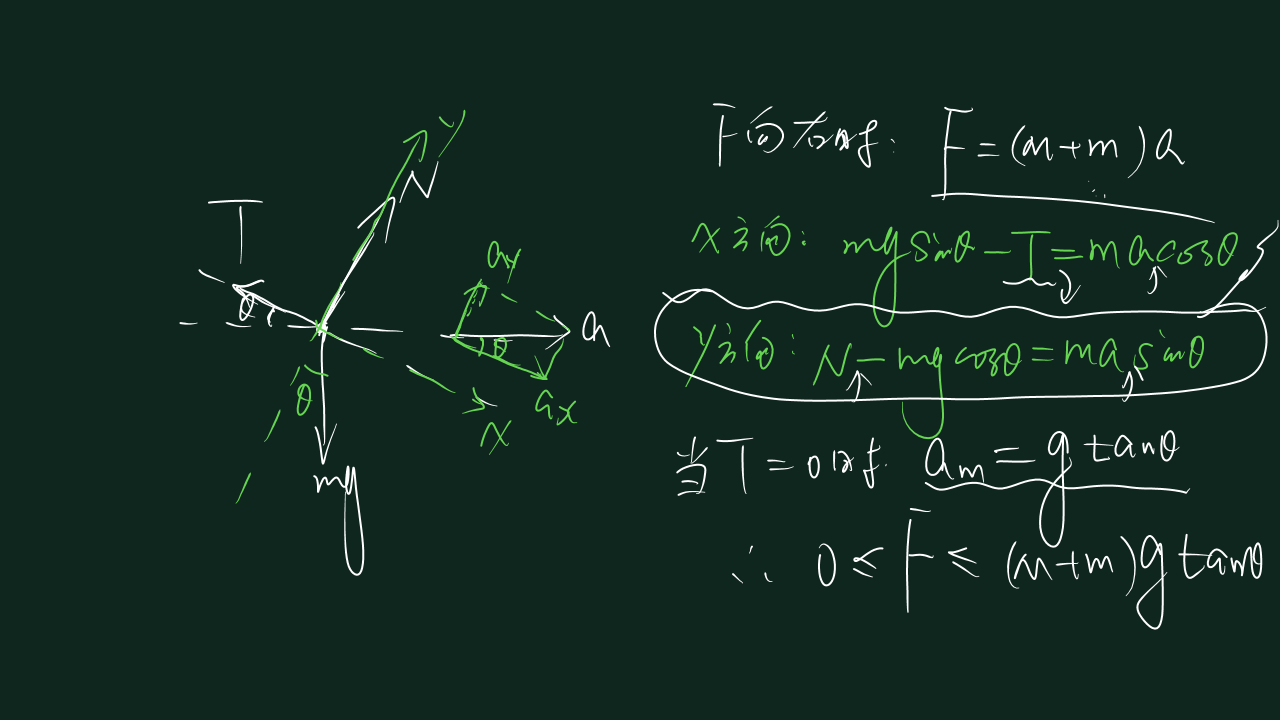 Y
N
T
θ
a
aY
θ
ax
X
θ
mg
F向右时: F=(M+m)a
X方向: mgsinθ-T=macosθ
Y方向: N-mgcosθ=masinθ
当T=0时 am=gtanθ
∴ 0≤F≤(M+m)gtanθ